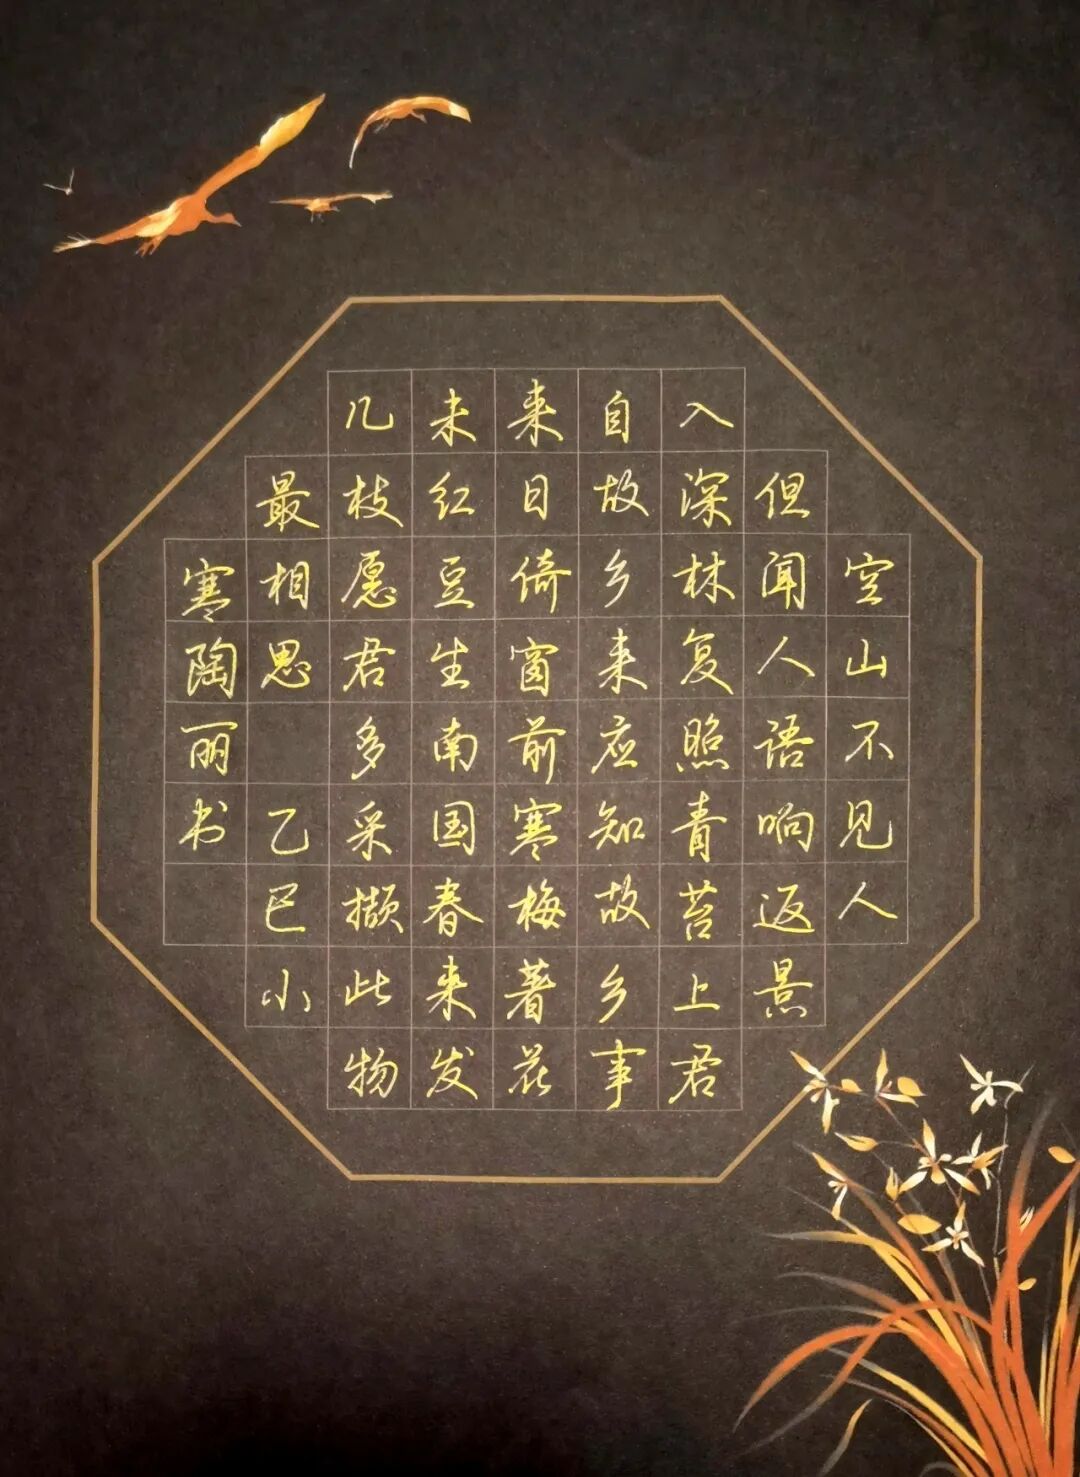 空山不见人
但闻人语响返景
入深林复照青苔上君
自故乡来应知故乡事
来日倚窗前寒梅著花
未红豆生南国春来发
几枝愿君多采撷此物
最相思 乙巳小
寒陶丽书